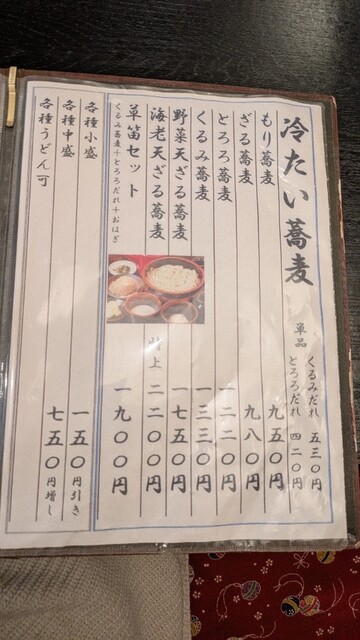 冷たい蕎麦
単品 くるみだれ 五三〇円
とろろだれ 四二〇円
もり蕎麦 九五〇円
ざる蕎麦 九八〇円
とろろ蕎麦 一二二〇円
くるみ蕎麦 一三三〇円
野菜天ざる蕎麦 一七五〇円
海老天ざる蕎麦 上 二二〇〇円
草笛セット 一九〇〇円
くるみ蕎麦+とろろだれ+おはぎ
各種小盛 一五〇円引き
各種中盛 七五〇円増し
各種うどん可